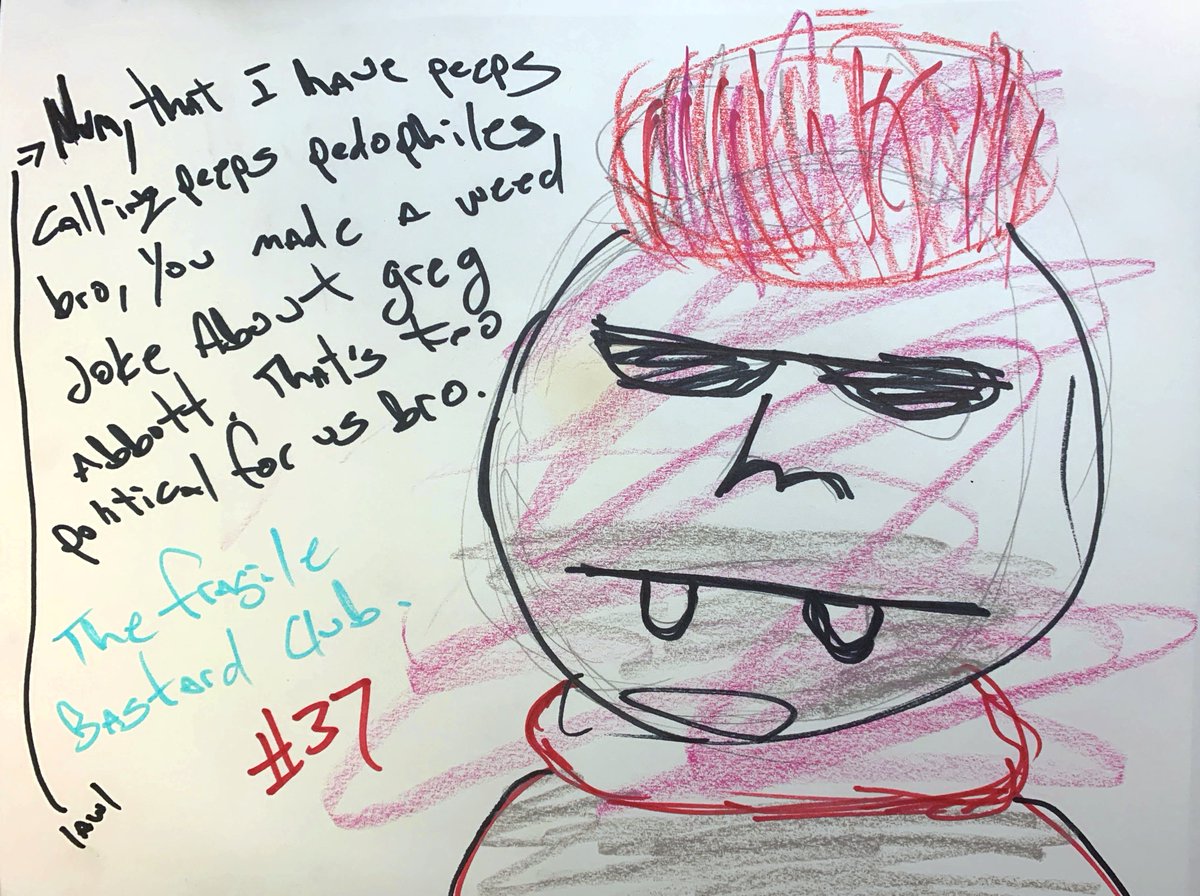 ⇒ Nvm, that I have peeps
calling peeps pedophiles,
bro, you made a weed
joke About greg
Abbott. That's too
political for us bro.
The fragile
Bastard Club.
#37
lawl